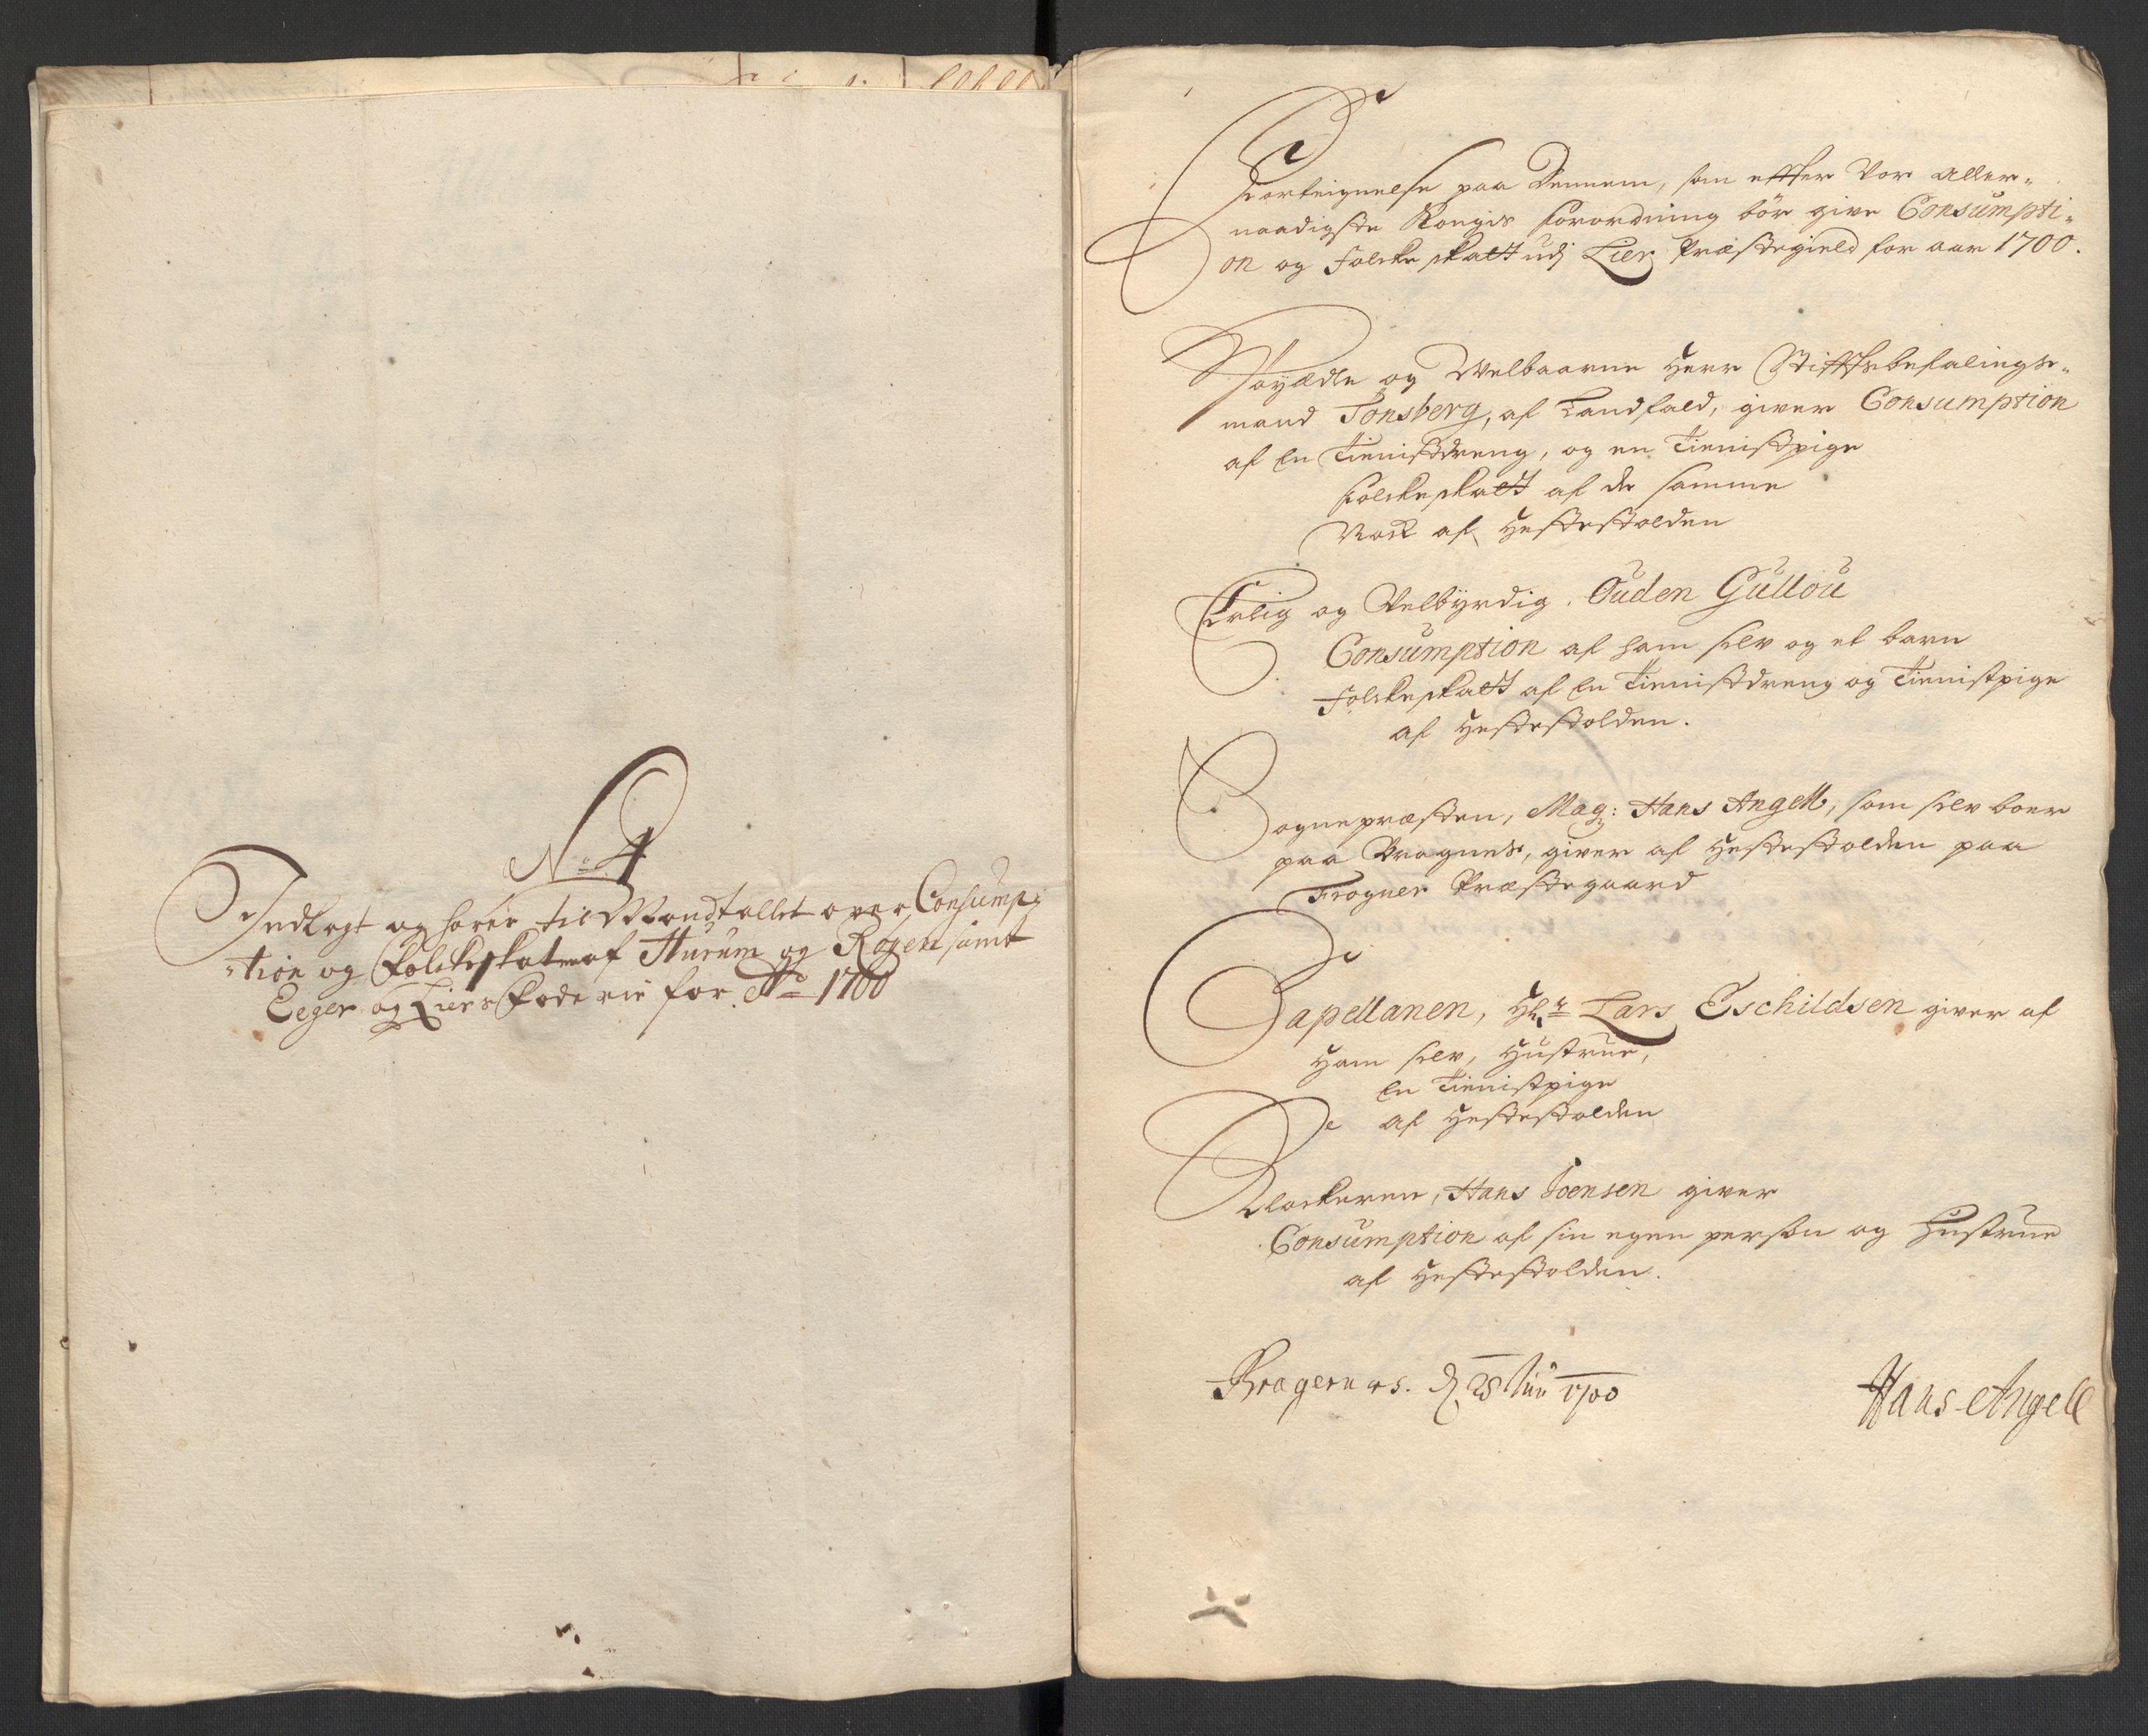 No 4
Indlagt og hører til Mandtallet over Consump-
-tion og Folcheskatten af Hurum og Røgen samt
Eeger og Liers Foderie for Ao 1700
Forteignelse paa Dennem, som effter Vor Aller-
naadigste Kongis forordning bør give Consumpti-
on og Folcke skatt udj Lier Præstegield for aar 1700.
Høyædle og Welbaarne Herr Stifftsbefalings-
mand Tonsberg, af Landfald, giver Consumption
af En Tienistdreng, og en Tienistpige
folckeskatt af de samme
Nock af Hestestolden
Erlig og Velbyrdig Ouden Gullou
Consumption af ham selv og et barn
Folckeskatt af En Tienistdreng og Tienistpige
af Hestestolden.
Sognepræsten, Mag: Hans Angell, som selv boer
paa Bragnes, giver af Hestestolden paa
Frogner Præstegaard
Capellanen, Hr Lars Eschildsen giver af
Ham selv, Hustrue,
En Tienistpige
af Hestestolden
Klockeren, Hans Joensen giver
Consumption af sin egen person og Hustrue
af Hestestolden.
Bragernes. d 28 Juni 1700
Hans Angell